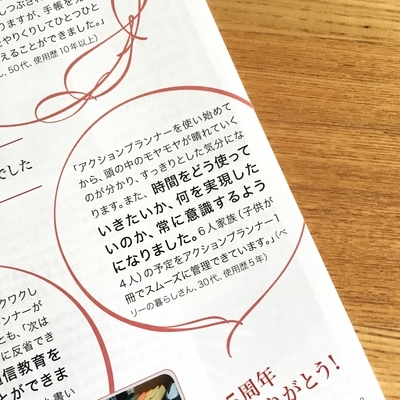 しつぶされ
ますが、手帳を
とやりくりしてひとつひと
えることができました。」
ん、50代、使用歴10年以上)
でした
「アクションプランナーを使い始めて
から、頭の中のモヤモヤが晴れていく
のが分かり、すっきりとした気分にな
ります。また、時間をどう使って
いきたいか、何を実現した
いのか、常に意識するよう
になりました。6人家族(子供が
4人)の予定をアクションプランナー1
冊でスムーズに管理できています。」(ベ
リーの暮らしさん、30代、使用歴5年)
クワクし
ンナーが
とも、「次は
に反省でき
信教育を
とができま
い書い
周年
がとう!